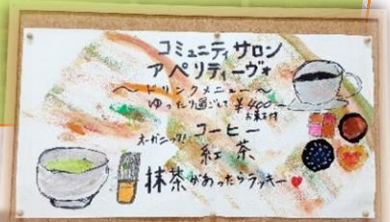 コミュニティサロン
アペリティーヴォ
～ドリンクメニュー～
ゆったり過ごして ¥400-
お菓子付
オーガニック！ コーヒー
紅茶
抹茶があったらラッキー